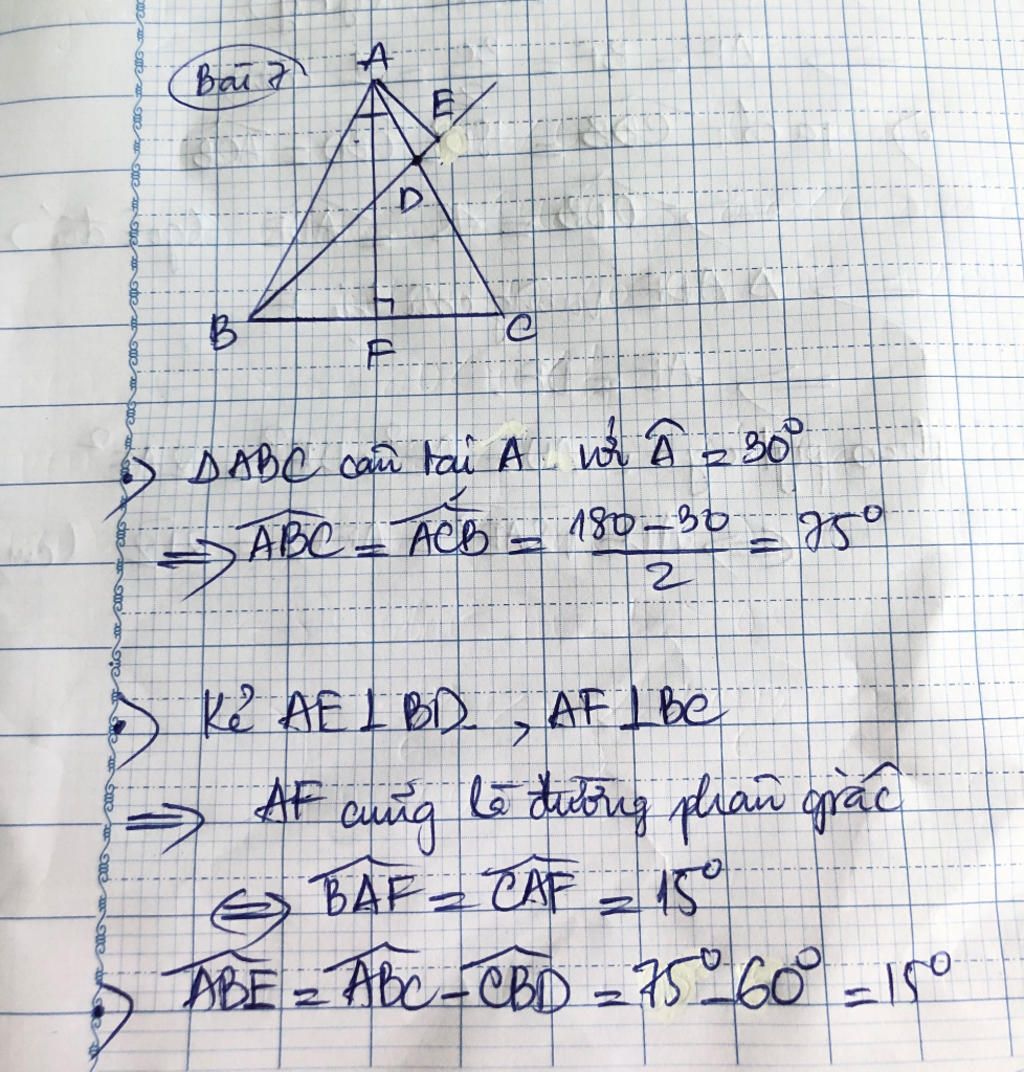 Bài 7
A
E
D
B
F
C
ΔABC cân tại A với Â = 30°
=> \widehat{ABC} = \widehat{ACB} = \frac{180-30}{2} = 75°
Kẻ AE ⊥ BD, AF ⊥ BC
=> AF cũng là đường phân giác
<=> \widehat{BAF} = \widehat{CAF} = 15°
\widehat{ABE} = \widehat{ABC} - \widehat{CBD} = 75° - 60° = 15°